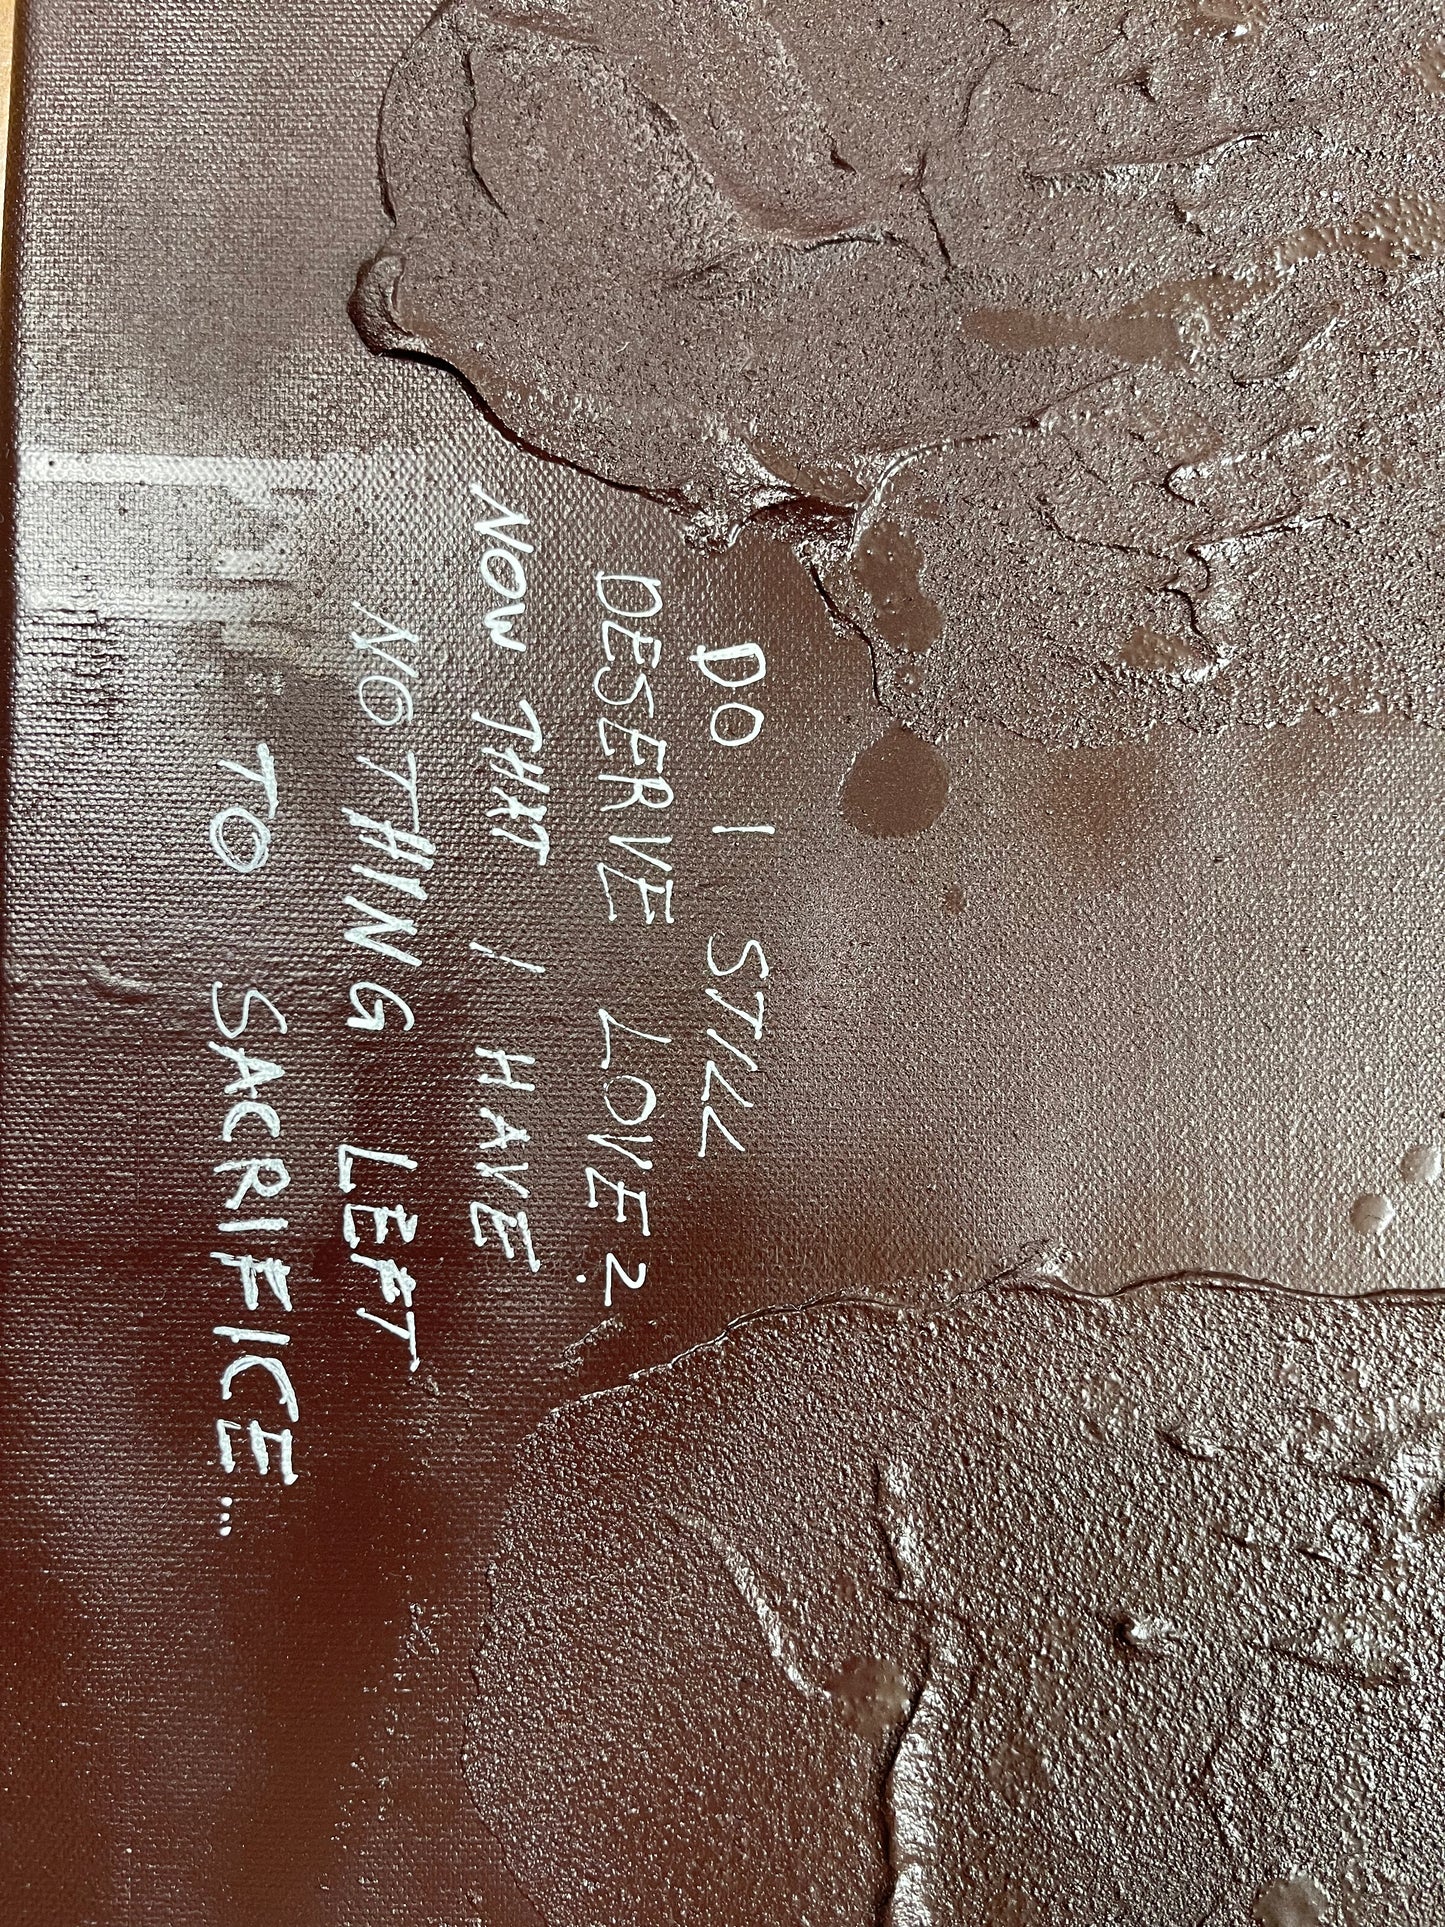 DO I STILL
DESERVE LOVE?
NOW THAT I HAVE
NOTHING LEFT
TO SACRIFICE...